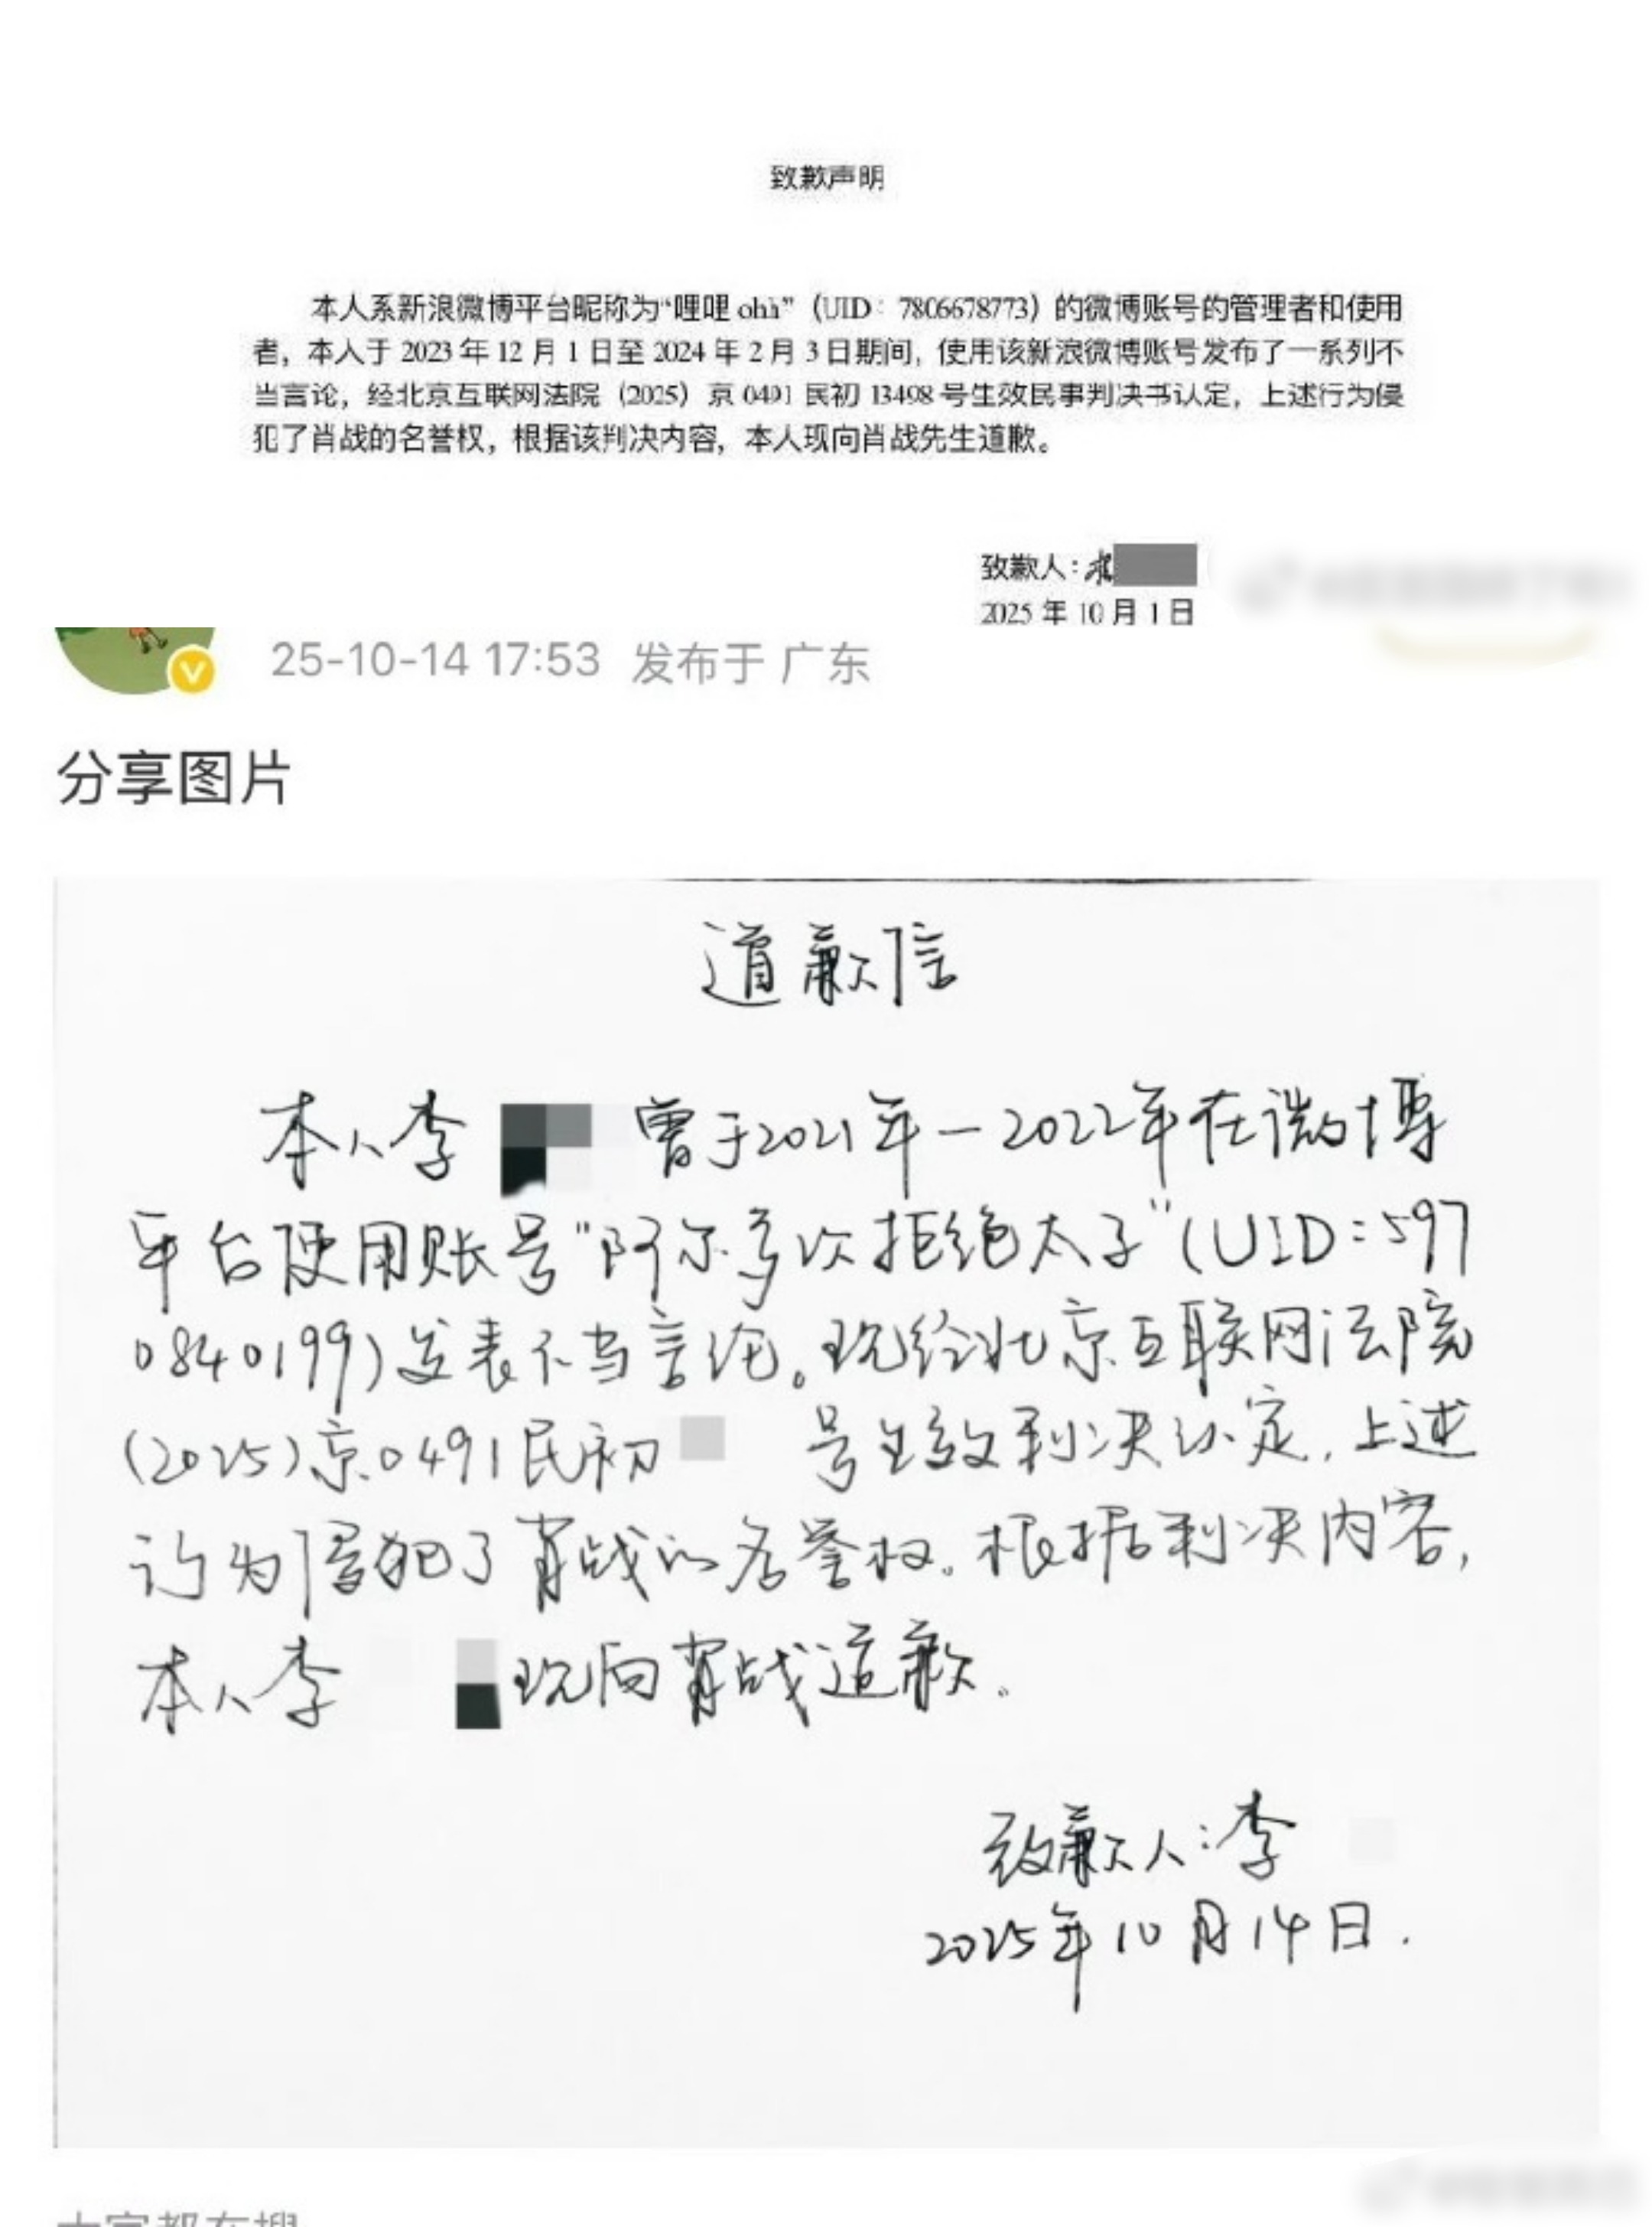 致歉声明
本人系新浪微博平台昵称为“哩哩 ohh”（UID：7806678773）的微博账号的管理者和使用
者，本人于 2023 年 12 月 1 日至 2024 年 2 月 3 日期间，使用该新浪微博账号发布了一系列不
当言论，经北京互联网法院（2025）京 0491 民初 13498 号生效民事判决书认定，上述行为侵
犯了肖战的名誉权，根据该判决内容，本人现向肖战先生道歉。
致歉人：
2025 年 10 月 1 日
25-10-14 17:53 发布于 广东
分享图片
道歉信
本人李 曾于2021年-2022年在微博
平台使用账号“阿尔多次拒绝太子”(UID:597
0840199)发表不当言论。现经北京互联网法院
(2025)京0491民初 号生效判决认定,上述
行为侵犯了肖战的名誉权。根据判决内容,
本人李 现向肖战道歉。
致歉人:李
2025年10月14日.
大家都在搜